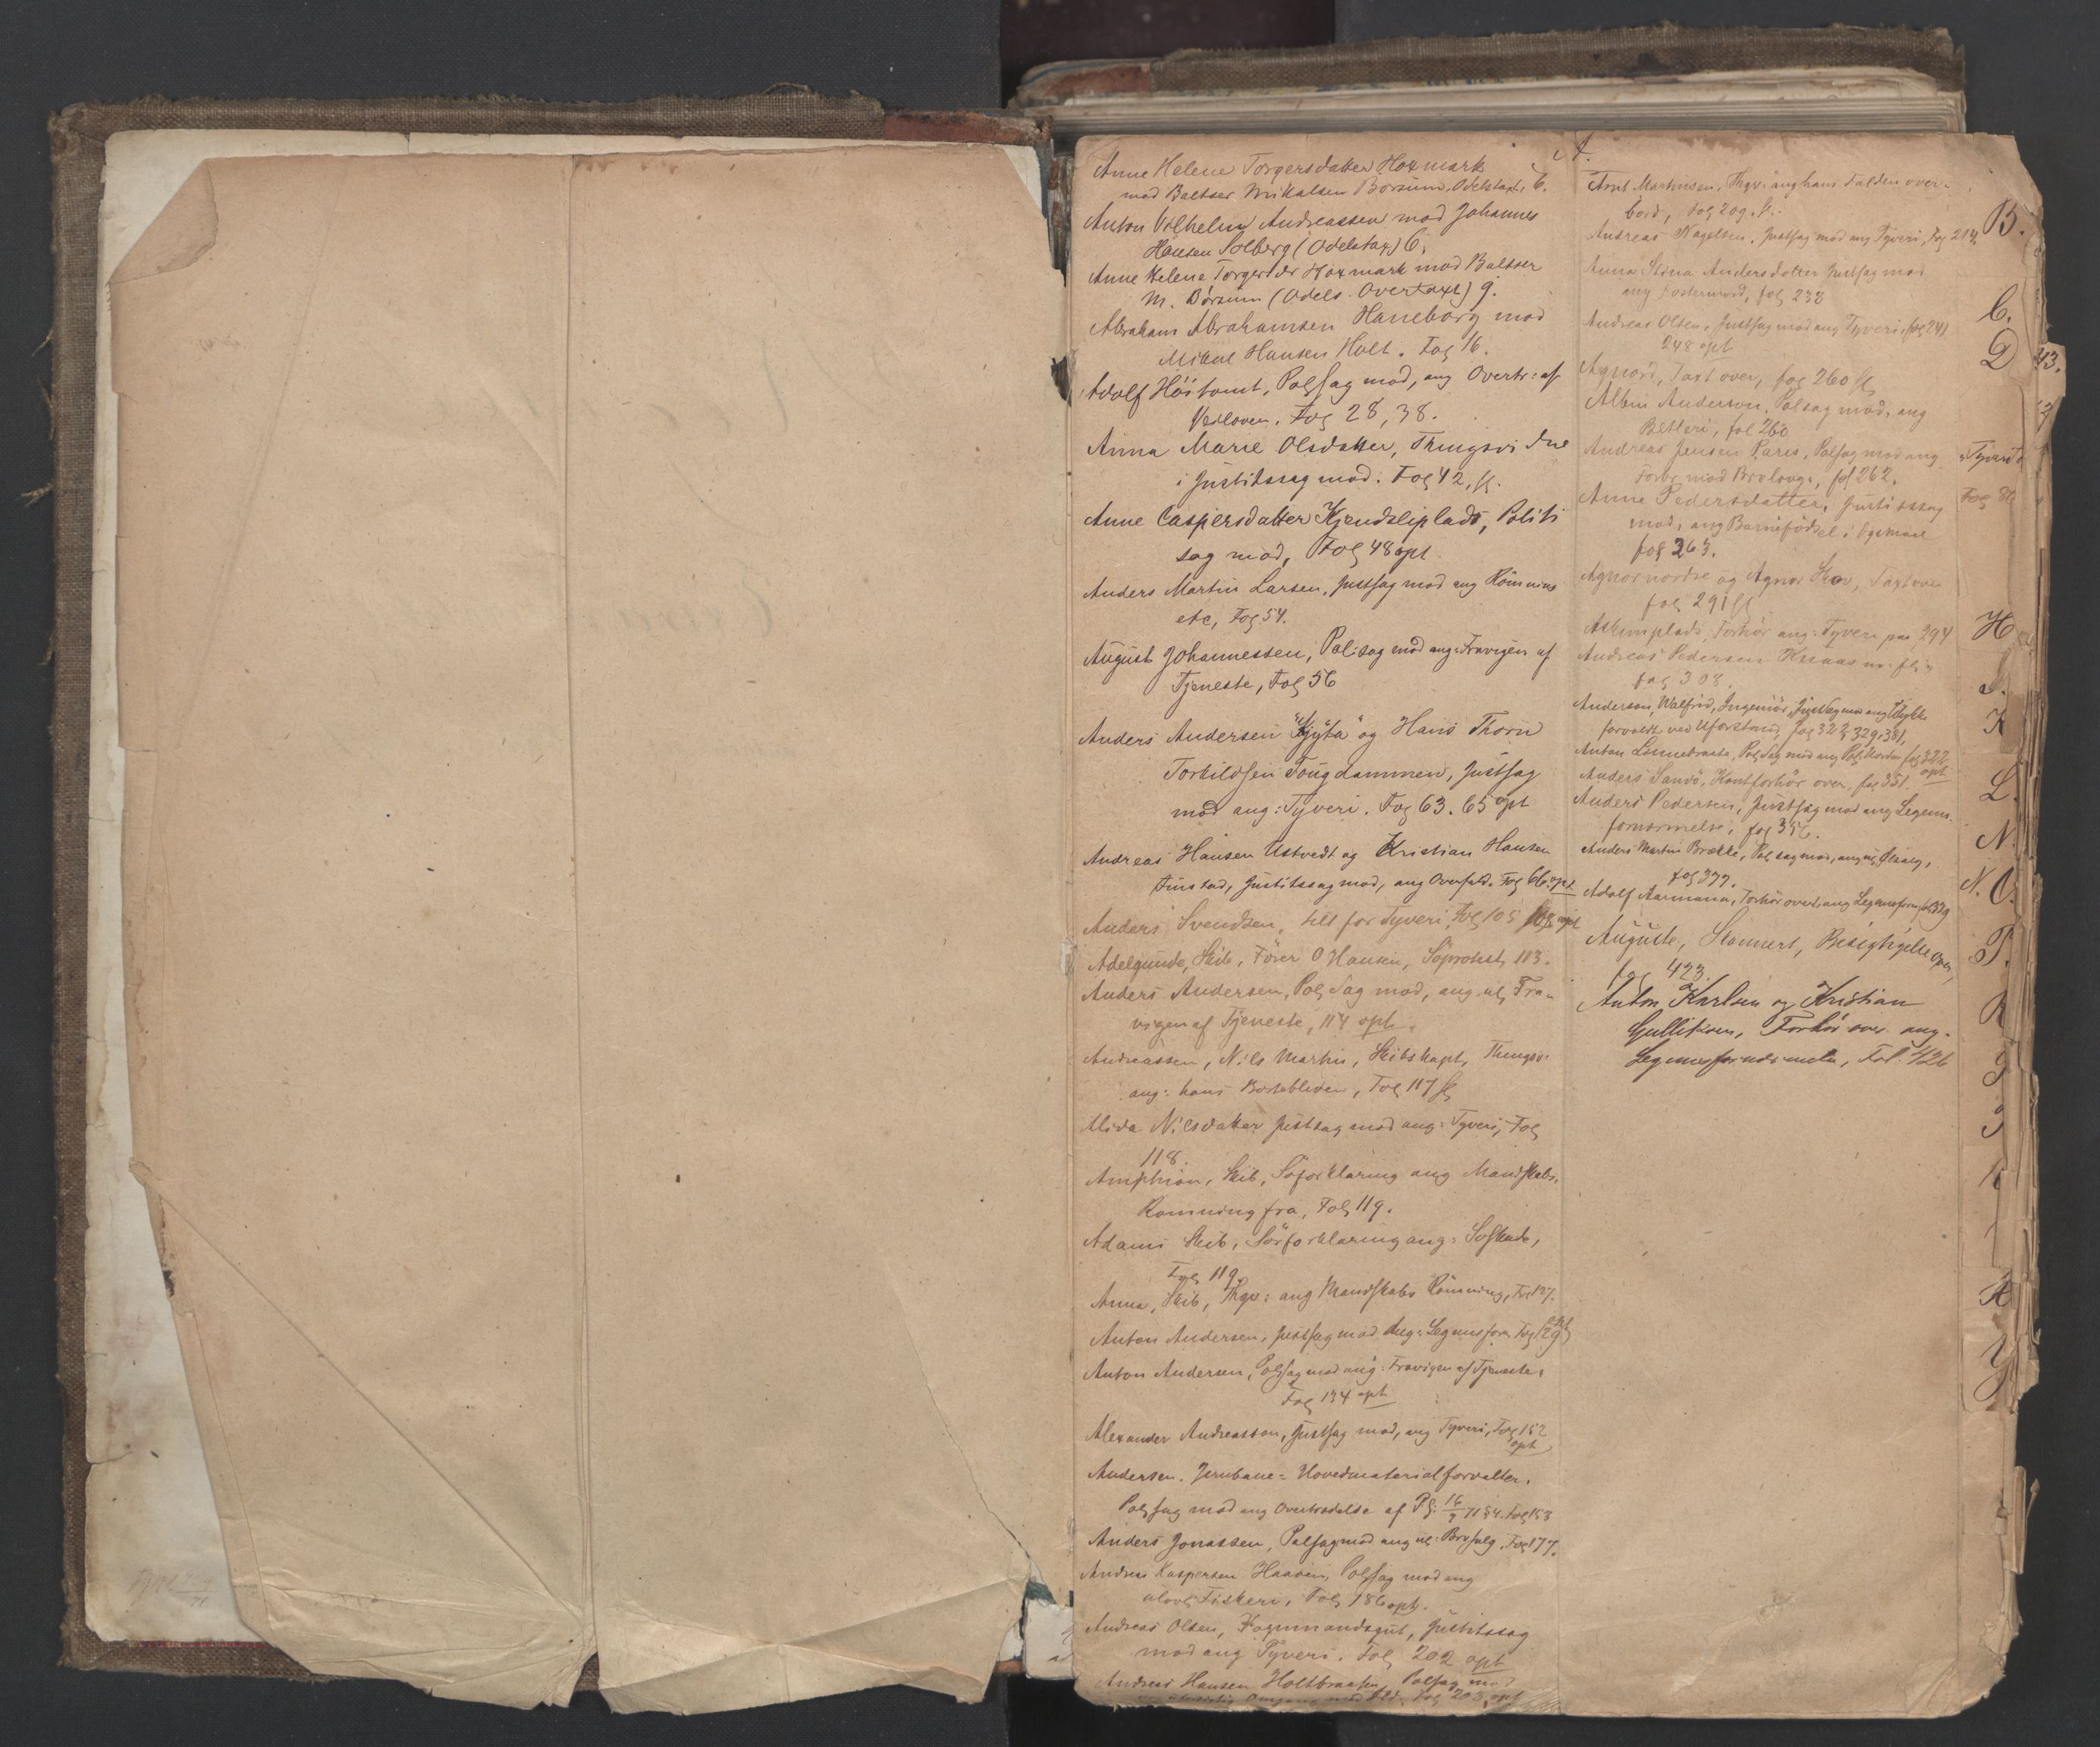 A.
Anne Helene Torgersdatter Hoxmark
mod Baltser Mikalsen Börsum, Odelstaxt, 6.
Anton Vilhelm Andreassen mod Johannes
Hansen Solberg (Odelstax) 6.
Anne Helene Torgersdr Hoxmark mod Baltser
M. Börsum (Odels Overtaxt) 9.
Abraham Abrahamsen Haneborg mod
Mikal Hansen Holt. Fol 16.
Adolf Höitomt, Polsag mod, ang Overtr: af
Veiloven. Fol 28, 38.
Anna Marie Olsdatter, Thingsvidne
i Justitssag mod. Fol 42, fl.
Anne Caspersdatter Kjendsliplads, Politi
sag mod, Fol 48 opt
Anders Martin Larsen, Justsag mod ang Römning
etc, Fol 54.
August Johannessen, Pol:sag mod ang: Fravigen af
Tjeneste, Fol 56
Anders Andersen "Kjyta" og Hans Thorn
Torkildsen Tougdammen, Justsag
mod ang: Tyveri. Fol 63. 65 opt
Andreas Hansen Ustvedt og Kristian Hansen
Finstad, Justitssag mod, ang Overfald. Fol 66. opt
Anders Svendsen, till for Tyveri, Fol 105 108 opt
Adelgunde, Skib, Förer O Hansen, Söprotest, 113.
Anders Andersen, Pol Sag mod, ang ul. Fra-
vigen af Tjeneste, 114 opt.
Andreassen, Nils Martin, Skibskapt, Thingsv:
ang: hans Bortebliven, Fol 117 fl
Alida Nilsdatter Justsag mod ang: Tyveri, Fol
118.
Amphion, Skib, Söforklaring ang Mandskabs
Römning fra, Fol 119.
Adams Skib, Söforklaring ang: Söskade,
Fol 119.
Anna, Skib, Thgv: ang Mandskabs Römning, Fol 127.
Anton Andersen, Justsag mod Ang: Legemsforn Fol 129 opt
Anton Andersen, Polsag mod ang: Fravigen af Tjeneste,
Fol 134 opt
Alexander Andreasson, Justsag mod, ang Tyveri, Fol 152
opt
Andersen. Jernbane= Hovedmaterialforvalter.
Polsag mod ang Overtrædelse af Pl. 16/ 71 §4. Fol 153
Anders Jonassen, Polsag mod ang ul: Brvsalg. Fol 177.
Andreas Kaspersen Haaven, Polsag mod ang
ulovl Fiskeri, Fol 186 opt.
Andreas Olsen, Fogmandsgut, Justitssag
mod ang Tyveri. Fol 202 opt
Andreas Hansen Holtbraaten, Polsag mod
Omgang med Ild. Fol 203 opt
Arnt Martinsen, Thgv: ang hans Falden over-
bord, Fol 209. fl.
Andreas Nagelsen. Justsag mod ang Tyveri, Fol 213,
Anna Stina Andersdotter Justsag mod
ang Fostermord, fol 238
Andreas Olsen, Justsag mod ang Tyveri, fol 241
248 opt
Agnord, Taxt over, fol 260 fl
Albin Anderson, Polsag mod, ang
Betleri, fol 260
Andreas Jensen Paris, Polsag mod ang
Forbr mod Brvlovg., fol 262.
Anne Pedersdatter, Justitssag
mod, ang Barnefödsel i
fol 263.
Agnor nordre og Agnor Skov, Taxt over
fol 291 fl
Askimplads, Forhör ang: Tyveri paa 294
Andreas Pedersen Knaas
fol 308.
Anderson, Walfrid, Ingeniör, Justsag mod ang Ulykke
forvoldt ved Uforstand, fol 323, 329, 381,
Anton Lönnebraate, Pol Sag mod ang Pol: Uorden fol 322
opt
Anders Sandö, Kontforhör over, fol 351.
Anders Pedersen, Justsag mod ang Legems-
fornærmelse, fol 356.
Anders Martin Brække, Polsag mod, ang ul. Ölsalg,
fol 377.
Adolf Aarmann, Forhör over, ang Legemsforn fol 379
Auguste, Stannert, Besigtigelse over,
fol 423.
Anton Karlsen og Kristian
Gulliksen, Forhör over ang.
Legemsfornærmelse, Fol. 426
B.
C.
D
43.
Tyveri
Fol 8
H
I.
K
L.
N.
N. O.
P.
R